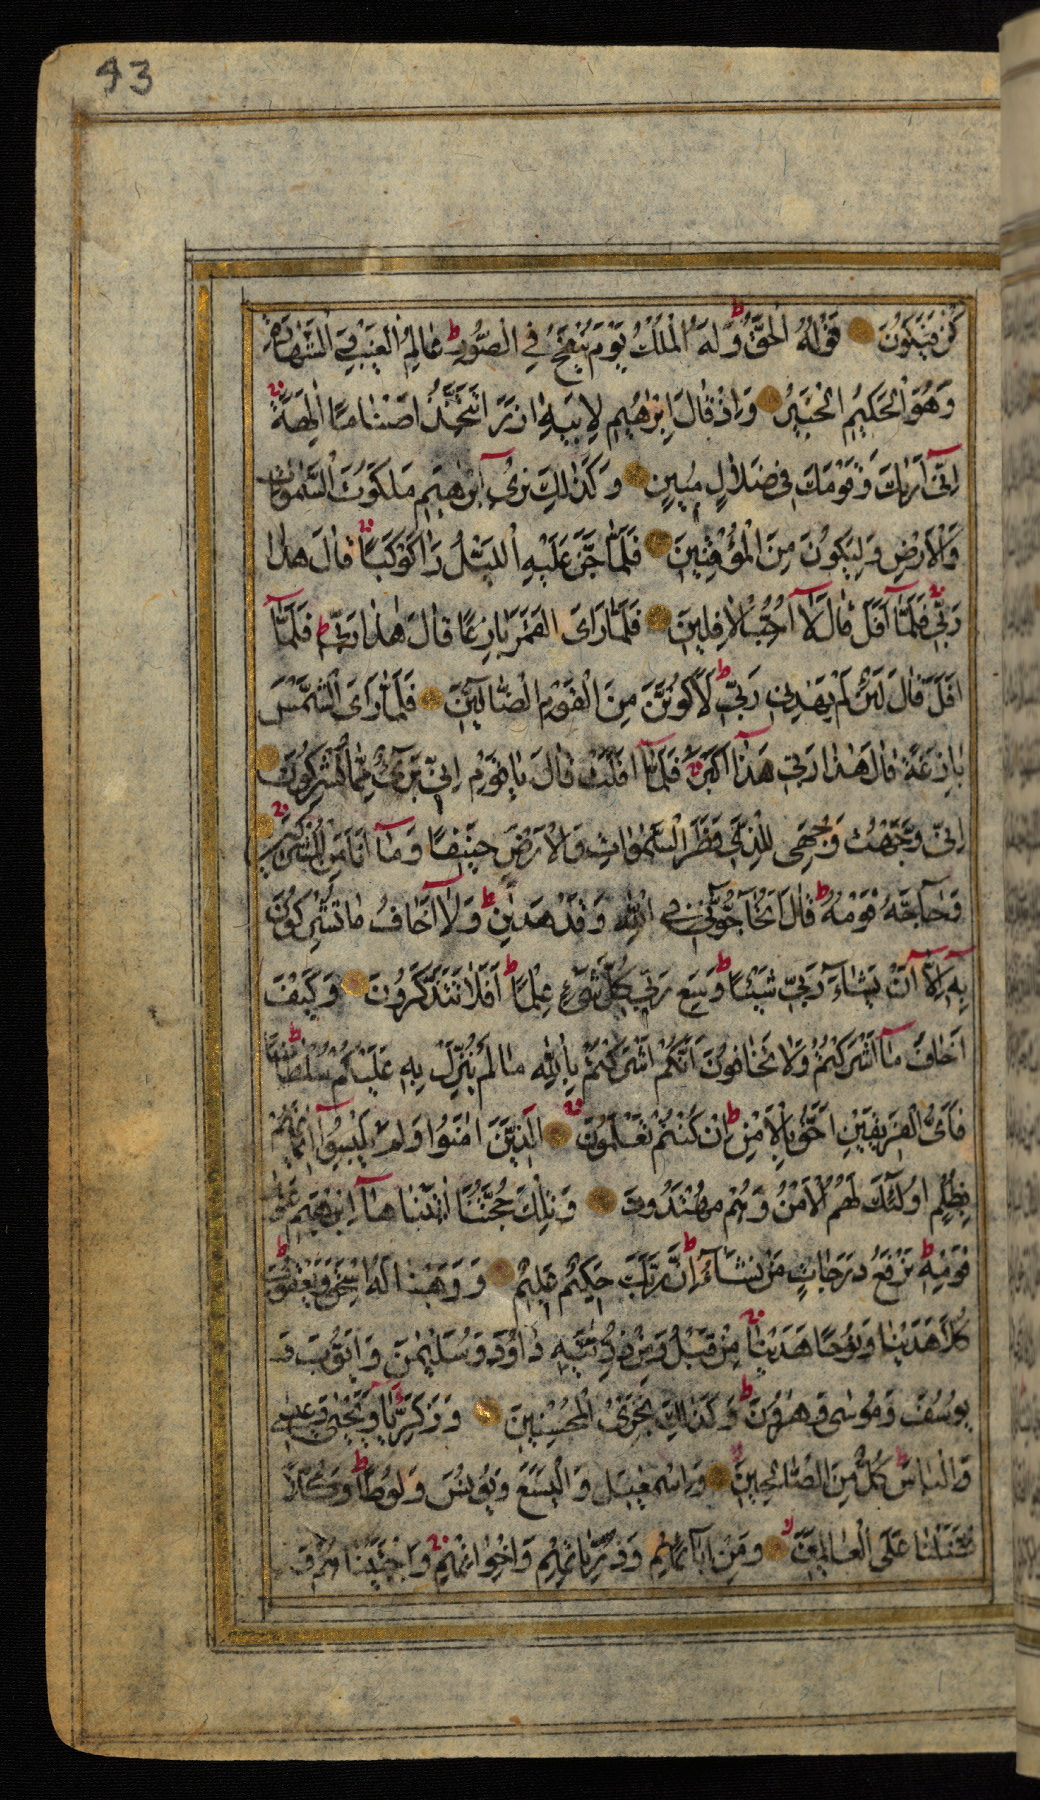 43
كُنْ فَيَكُونُ قَوْلُهُ الْحَقُّ ط وَلَهُ الْمُلْكُ يَوْمَ يُنْفَخُ فِي الصُّورِ ط عَالِمُ الْغَيْبِ وَ الشَّهَادَةِ
وَهُوَ الْحَكِيمُ الْخَبِيرُ وَاِذْ قَالَ اِبْرٰهِيمُ لِاَبِيهِ اٰزَرَ اَتَتَّخِذُ اَصْنَامًا اٰلِهَةً
اِنِّىٓ اَرٰيكَ وَ قَوْمَكَ فِى ضَلَالٍ مُبِينٍ وَكَذٰلِكَ نُرِىٓ اِبْرٰهِيمَ مَلَكُوتَ السَّمٰوَاتِ
وَالْاَرْضِ وَلِيَكُونَ مِنَ الْمُؤْقِنِينَ فَلَمَّا جَنَّ عَلَيْهِ الَّيْلُ رَاٰ كَوْكَبًا قَالَ هٰذَا
رَبِّى فَلَمَّآ اَفَلَ قَالَ لَآ اُحِبُّ الْاٰفِلِينَ فَلَمَّا رَاَى الْقَمَرَ بَازِغًا قَالَ هٰذَا رَبِّى ط فَلَمَّآ
اَفَلَ قَالَ لَئِنْ لَمْ يَهْدِنِى رَبِّى ط لَاَكُونَنَّ مِنَ الْقَوْمِ الضَّالِّينَ فَلَمَّا رَاَى الشَّمْسَ
بَازِغَةً قَالَ هٰذَا رَبِّى هٰذَآ اَكْبَرُ فَلَمَّآ اَفَلَتْ قَالَ يَا قَوْمِ اِنِّى بَرِىٓءٌ مِمَّا تُشْرِكُونَ
اِنِّى وَجَّهْتُ وَجْهِىَ لِلَّذِى فَطَرَ السَّمٰوَاتِ وَالْاَرْضَ حَنِيفًا وَمَآ اَنَا مِنَ الْمُشْرِكِينَ
وَحَآجَّهُ قَوْمُهُ ط قَالَ اَتُحَآجُّوٓنِّى فِى اللّٰهِ وَقَدْ هَدٰينِ ط وَلَآ اَخَافُ مَا تُشْرِكُونَ
بِهِٓ اِلَّآ اَنْ يَشَآءَ رَبِّى شَيْئًا ط وَسِعَ رَبِّى كُلَّ شَىْءٍ عِلْمًا ط اَفَلَا تَتَذَكَّرُونَ وَكَيْفَ
اَخَافُ مَآ اَشْرَكْتُمْ وَلَا تَخَافُونَ اَنَّكُمْ اَشْرَكْتُمْ بِاللّٰهِ مَا لَمْ يُنَزِّلْ بِهِ عَلَيْكُمْ سُلْطَانًا ط
فَاَىُّ الْفَرِيقَيْنِ اَحَقُّ بِالْاَمْنِ ط اِنْ كُنْتُمْ تَعْلَمُونَ اَلَّذِينَ اٰمَنُوا وَلَمْ يَلْبِسُوٓا اِيمَانَهُمْ
بِظُلْمٍ اُولٰٓئِكَ لَهُمُ الْاَمْنُ وَهُمْ مُهْتَدُونَ وَتِلْكَ حُجَّتُنَآ اٰتَيْنَاهَآ اِبْرٰهِيمَ عَلٰى
قَوْمِهِ ط نَرْفَعُ دَرَجَاتٍ مَنْ نَشَآءُ ط اِنَّ رَبَّكَ حَكِيمٌ عَلِيمٌ وَوَهَبْنَا لَهُ اِسْحٰقَ وَيَعْقُوبَ ط
كُلًّا هَدَيْنَا وَنُوحًا هَدَيْنَا مِنْ قَبْلُ وَمِنْ ذُرِّيَّتِهِ دَاوُدَ وَسُلَيْمٰنَ وَاَيُّوبَ وَ
يُوسُفَ وَمُوسٰى وَهٰرُونَ ط وَكَذٰلِكَ نَجْزِى الْمُحْسِنِينَ وَزَكَرِيَّا وَيَحْيٰى وَعِيسٰى
وَاِلْيَاسَ ط كُلٌّ مِنَ الصَّالِحِينَ وَاِسْمٰعِيلَ وَالْيَسَعَ وَيُونُسَ وَلُوطًا ط وَكُلًّا
فَضَّلْنَا عَلَى الْعَالَمِينَ وَمِنْ اٰبَآئِهِمْ وَذُرِّيَّاتِهِمْ وَاِخْوَانِهِمْ وَاجْتَبَيْنَاهُمْ وَ